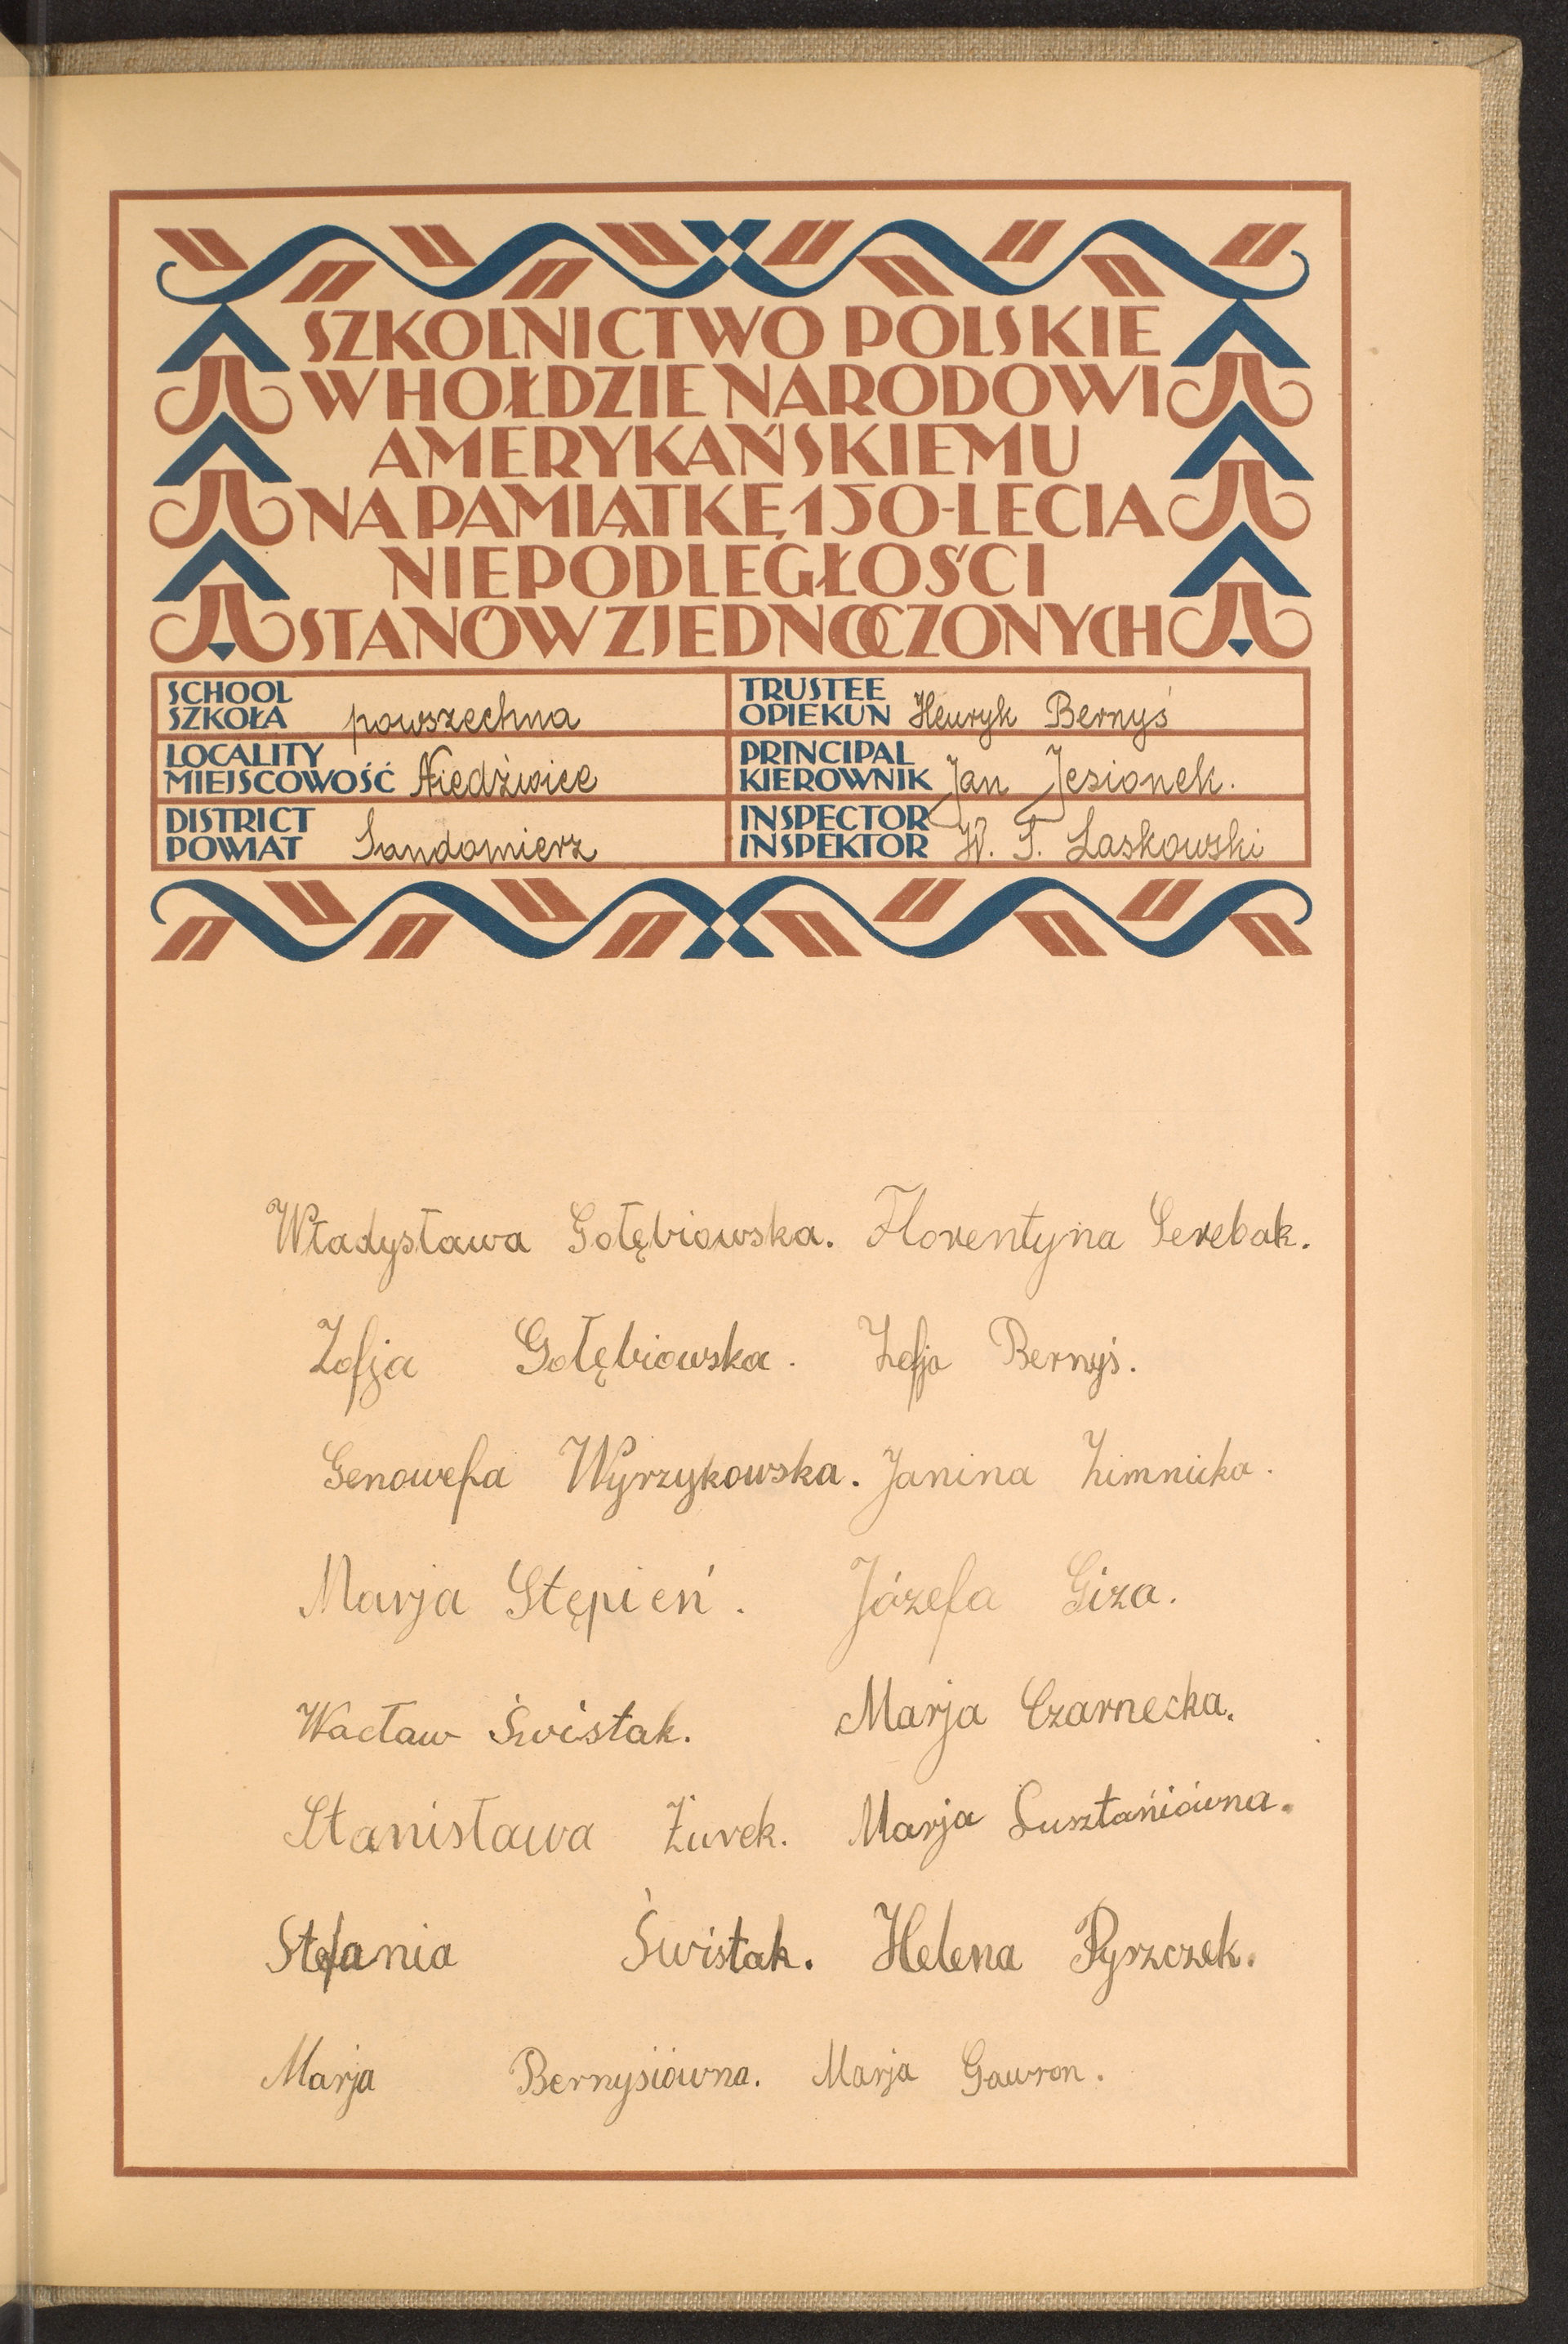 SZKOLNICTWO POLSKIE
W HOŁDZIE NARODOWI
AMERYKAŃSKIEMU
NA PAMIĄTKĘ 150-LECIA
NIEPODLEGŁOŚCI
STANÓW ZJEDNOCZONYCH
SCHOOL
SZKOŁA powszechna
TRUSTEE
OPIEKUN Henryk Bernyś
LOCALITY
MIEJSCOWOŚĆ Niedźwice
PRINCIPAL
KIEROWNIK Jan Jesionek.
DISTRICT
POWIAT Sandomierz
INSPECTOR
INSPEKTOR W. T. Laskowski
Władysława Gołębiowska. Florentyna Serebak.
Zofja Gołębiowska. Zofja Bernyś.
Genowefa Wyrzykowska. Janina Zimnicka.
Marja Stępień. Józefa Giza.
Wacław Świstak. Marja Czarnecka.
Stanisława Żurek. Marja Susztańiówna.
Stefania Świstak. Helena Pyrszczek.
Marja Bernysiówna. Marja Gawron.